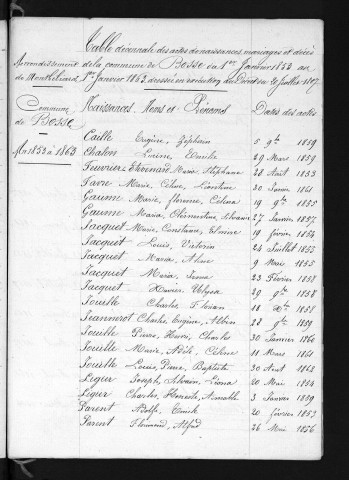 Table décennale des actes de naissances, mariages et décès
Arrondissement de la commune de Bosse du 1er Janvier 1853 au
de Montbéliard 1er Janvier 1863 dressée en exécution du Décret du 20 Juillet 1807
Commune Naissances. Noms et Prénoms Dates des actes
de Bosse
An 1853 à 1863
Caille Eugène, Zéphirin 5 9bre 1859
Chalon Emile 29 Mars 1859
Feuvrier Marie Stéphanie 28 Août 1853
Favre Marie, Céline, Léontine 30 Janvier 1861
Gaume Marie, Florence, Célina 19 9bre 1855
Gaume Maria, Clémentine, 27 Janvier 1857
Jacquet Marie, Constance, Elmire 19 février 1854
Jacquet Louis, Victorin 24 Juillet 1855
Jacquet Maria, Aline 9 Mai 1855
Jacquet Maria, Emma 23 Février 1858
Jacquet Xavier, Ulysse 29 9bre 1858
Jouille Charles, Florian 18 Xbre 1858
Jeannerot Charles, Eugène, Albin 28 9bre 1859
Jouille Pierre, Henri, Charles 30 Janvier 1860
Jouille Marie, Adèle, Céline 11 Mars 1861
Jouille Louis, Pierre, Baptiste 30 Août 1862
Léger Joseph, Silvain, Léona 20 Mai 1854
Léger Charles, Honoré, Aimable 3 Janvier 1859
Parent Adolfe, Emile 20 février 1853
Parent Florimond, Alfred 26 Mai 1856